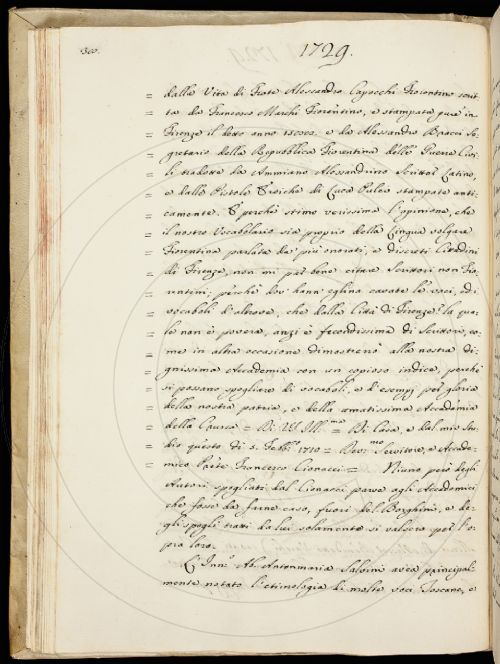 300.
1729.
= dalla Vita di Frate Alessandro Capocchi Fiorentino scrit-
= ta da Francesco Marchi Fiorentino, e stampata pure in
= Firenze il detto anno e da Alessandro Bracci Se-
= gretario della Repubblica Fiorentina delle Guerre Civi-
= li tradotte da Ammiano Alessandrino Scrittor Latino,
= e dalle Pistole Eroiche di Luca Pulci stampate anti-
= camente. E perchè stimo verissima l'opinione, che
= il nostro Vocabolario sia proprio della Lingua volgare
= Fiorentina parlata da' più onorati, e discreti Cittadini
= di Firenze, non mi par bene citare Scrittori non Fio-
= rentini; perchè dov' hann' eglino cavate le voci, ed i
= vocaboli d'altrove, che dalla Città di Firenze? la qua-
= le non è povera, anzi è fecondissima di Scrittori, co-
= me in altra occasione dimostrerò alla nostra di-
= gnissima Accademia con un copioso indice, perchè
= si possano spogliare di vocaboli, e d'esempj per gloria
= della nostra patria, e della amatissima Accademia
= della Crusca = Di VS. Ill.ma = Di Casa, e dal mio Stu-
= dio questo dì 5. Febb.o 1710 = Dev.mo Servitore, e Accade-
= mico Prete Francesco Cionacci = Niuno però degli
Autori spogliati dal Cionacci parve agli Accademici
che fosse da farne caso, fuori del Borghini, e de-
gli spogli tratti da lui solamente si valsero per l'o-
pra loro.
L'Inn.o Ab. Antonmaria Salvini avea principal-
mente notato l'etimologia di molte voci Toscane, e